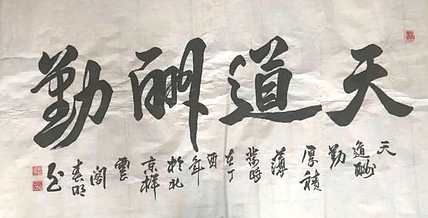 天道酬勤
天
道酬
勤
厚積
薄
發時
在丁
酉年
於北
京祥
雲
閣
春明